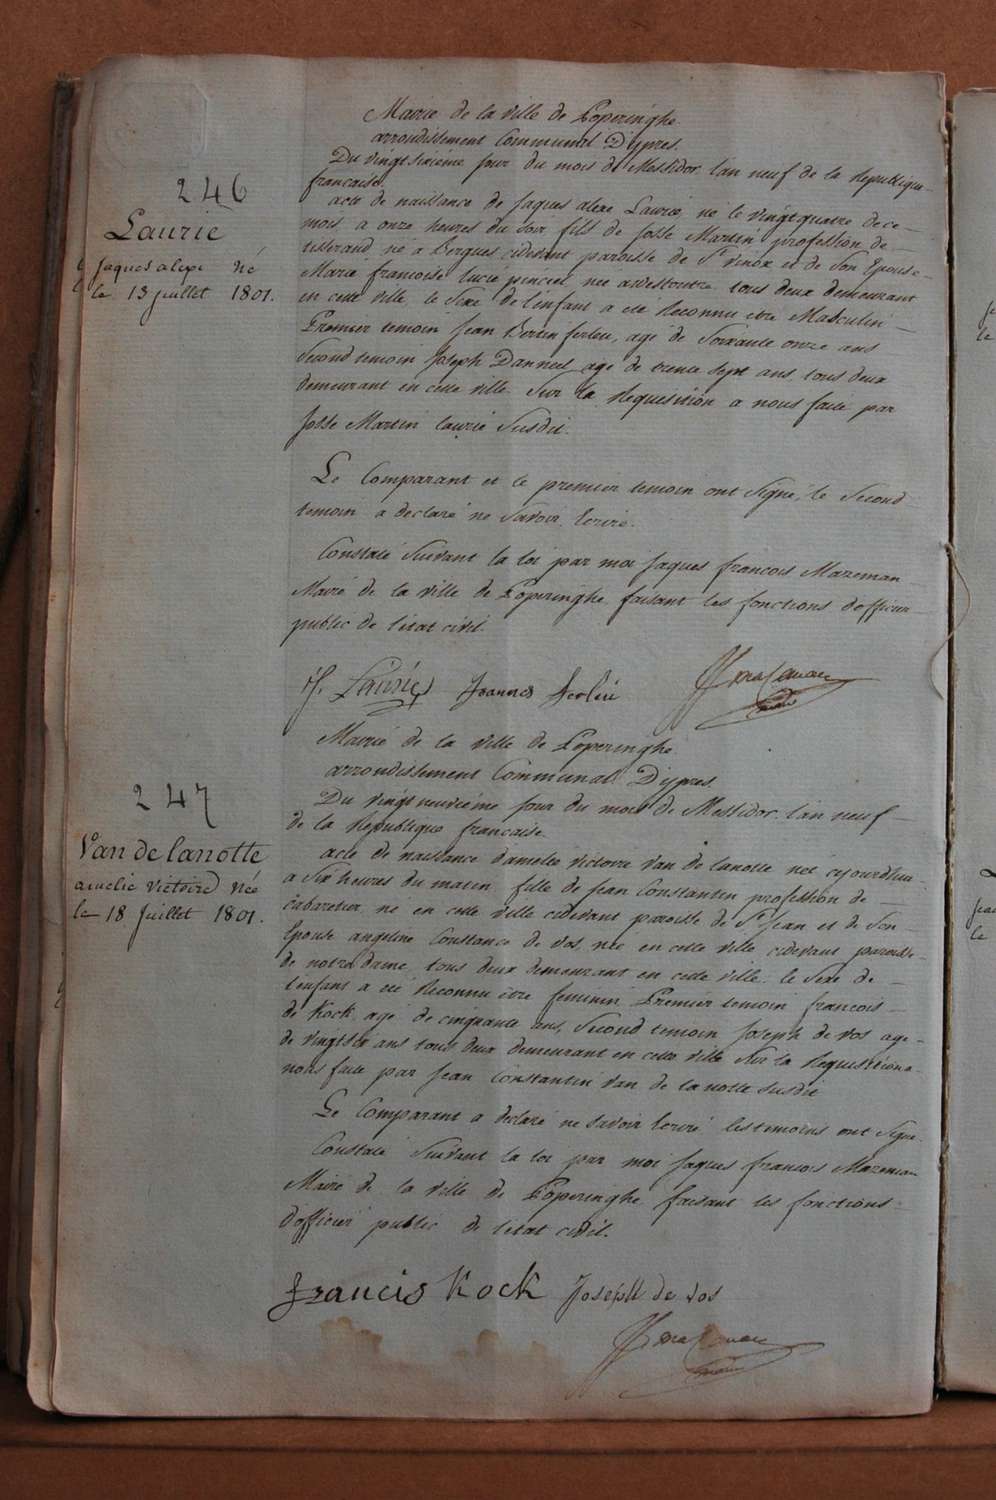 Mairie de la ville de Poperinghe
arrondissement Communal D'ypres.
Du vingt sixième jour du mois de Messidor l'an neuf de la Republique
francaise.
246
Laurie
Jaques alexe né
le 13 juillet 1801.
acte de naissance de Jaques alexe Laurie, né le vingtquatre de ce
mois a onze heures du soir fils de Josse Martin profession de
tisserand né a Bergues cidevant paroisse de St vinox et de Son Epouse
Marie francoise lucie née a westoutre tous deux demeurant
en cette ville, le Sexe de l'enfant a été Reconnu etre Masculin
Premier temoin Jean Bertin agé de Soixante onze ans
Second temoin Joseph Danneel agé de trente sept ans tous deux
demeurant en cette ville Sur la Requesition a nous faite par
Josse Martin laurie Susdit.
Le Comparant et le premier temoin ont signé, le Second
temoin a declaré ne Savoir Ecrire.
Constaté Suivant la loi par moi Jaques francois Mazeman
Maire de la ville de Poperinghe faisant les fonctions d'officier
public de l'etat civil.
Laurie Joannes
Mairie de la ville de Poperinghe
arrondissement Communal D'ypres.
247
Van de lanotte
amelie victoire Née
le 18 Juillet 1801.
Du vingt neuvième jour du mois de Messidor l'an neuf
de la Republique francaise
acte de naissance d'amelie victoire van de lanotte née cejourdhui
a Six heures du matin fille de Jean Constantin profession de
cabaretier né en cette ville cidevant paroisse de St Jean et de Son
Epouse angeline Constance de vos née en cette ville cidevant paroisse
de notre dame tous deux demeurant en cette ville. le Sexe de
l'enfant a été Reconnu etre feminin Premier temoin francois
de Kock agé de cinquante ans, Second temoin Joseph de vos agé
de vingtsix ans tous deux demeurant en cette ville Sur la Requisition a
nous faite par Jean Constantin van de lanotte susdit
Le Comparant a declaré ne savoir Ecrire les temoins ont signé
Constaté Suivant la loi par moi Jaques francois Mazeman
Maire de la ville de Poperinghe faisant les fonctions
d'officier public de l'etat civil.
francis Kock Joseph de vos